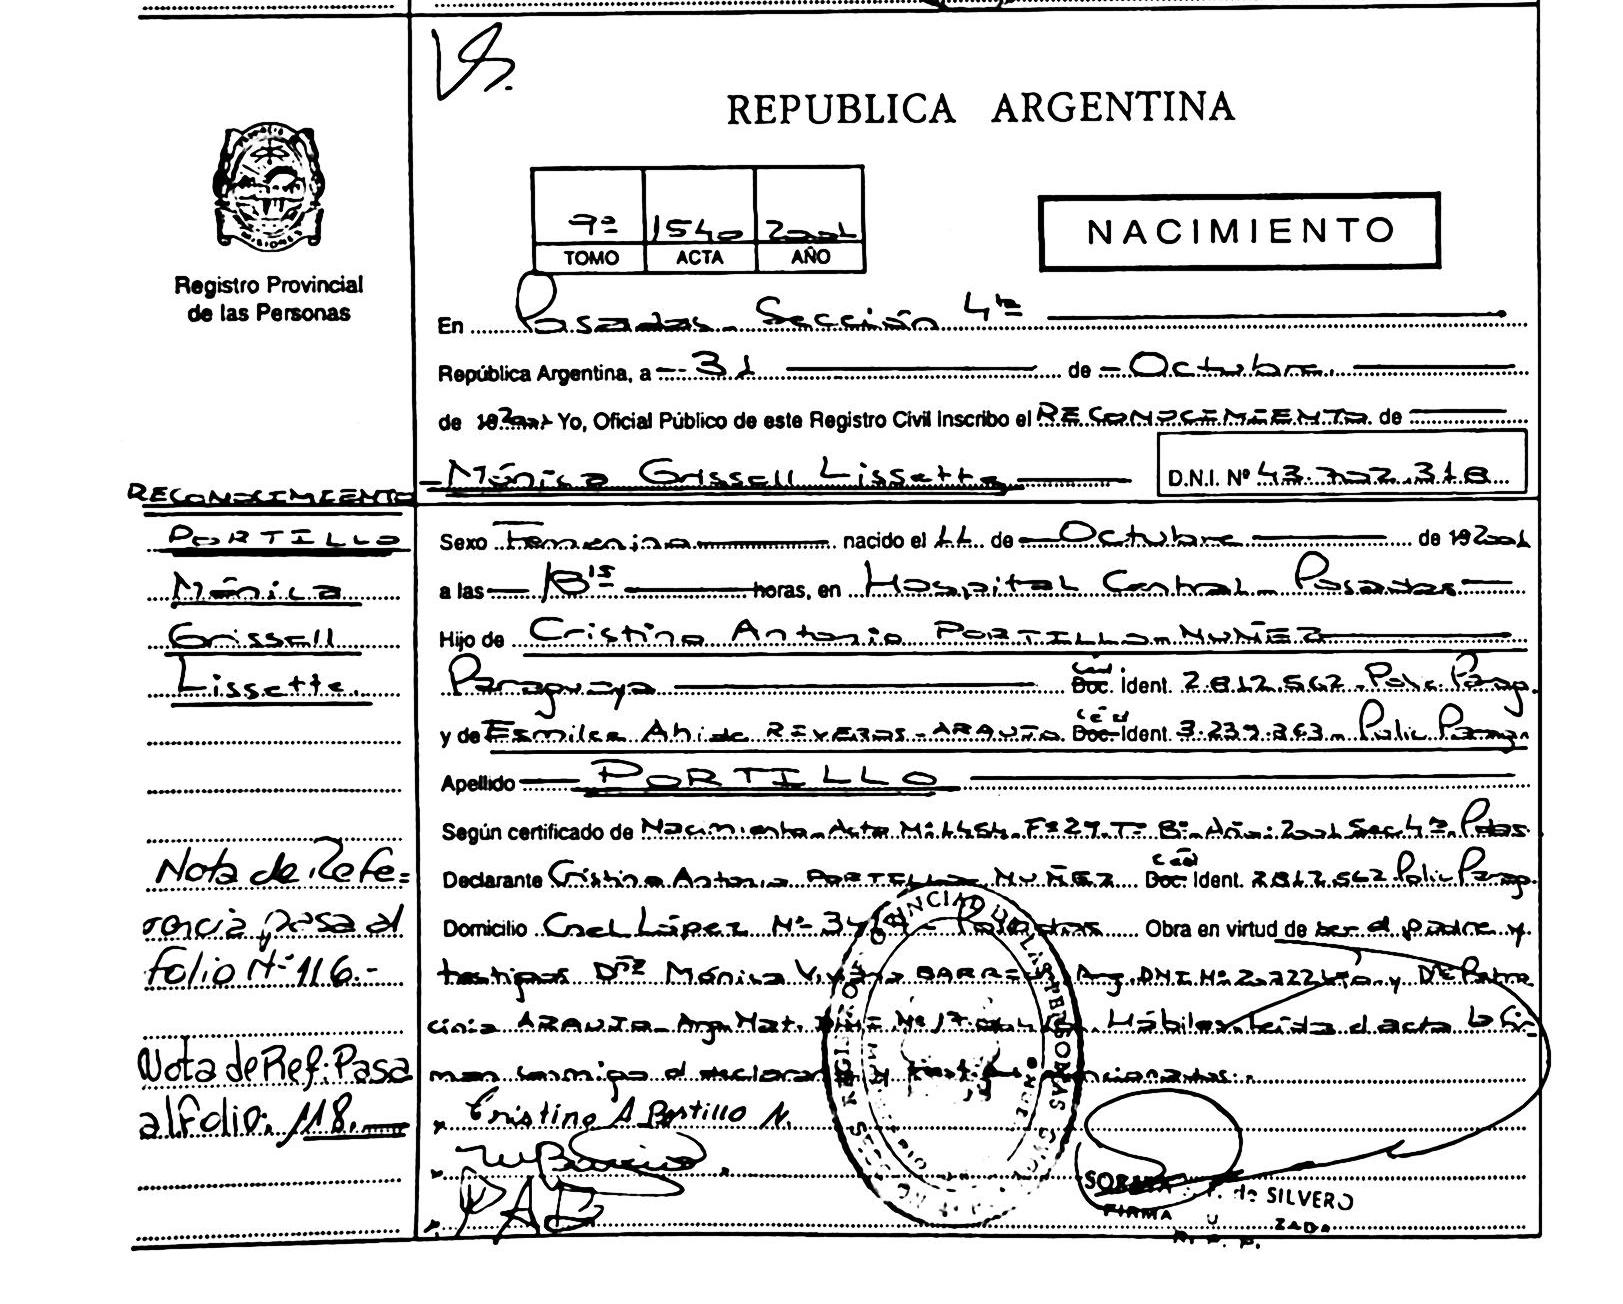 Vs.
REPUBLICA ARGENTINA
MISIONES
Registro Provincial
de las Personas
7º 1540 2001
TOMO ACTA AÑO
NACIMIENTO
En Posadas. Sección 4ta
República Argentina, a 31 de Octubre.
de 192001 Yo, Oficial Público de este Registro Civil Inscribo el RECONOCIMIENTO de
Mónica Grissell Lissette
D.N.I. Nº 43.702.318
RECONOCIMIENTO
PORTILLO
Mónica
Grissell
Lissette.
Sexo Femenino nacido el 11 de Octubre de 192001
a las 18 15 horas, en Hospital Central Posadas
Hijo de Cristino Antonio PORTILLO NUÑEZ
Paraguaya Ced. Doc. Ident. 2.812.562 Polic. Parag.
y de Esmilce Ahide REVEROS-ARAUJO Ced Doc Ident. 3.239.863 Polic Parag.
Apellido PORTILLO
Según certificado de Nacimiento Acta Nº 1454. Fº 29. Tº 8º Año: 2001 Sec. 4ª Pdas
Declarante Cristino Antonio PORTILLO NUÑEZ Ced Doc. Ident. 2812562 Polic Parag.
Domicilio Cnel López Nº Posadas Obra en virtud de ser el padre y
testigos Mónica Arg. DNI Nº y
ARAUJO Arg. Mat. Nº 17. Hábiles. Leída el acta la fir-
man conmigo el declarante y testigos mencionados.
Nota de Refe=
rencia pasa al
folio Nº 116.-
Nota de Ref: Pasa
al folio: 118.
Cristino A Portillo N.
REGISTRO PROVINCIAL DE LAS PERSONAS
de SILVERO
FIRMA